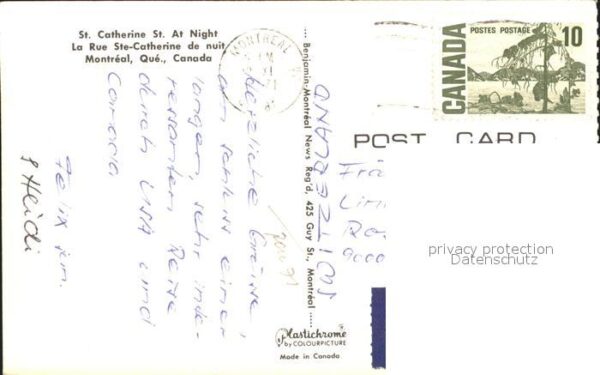 St. Catherine St. At Night
La Rue Ste-Catherine de nuit
Montréal, Qué., Canada
MONTREAL
CANADA
POSTES POSTAGE
10
POST CARD
Herzliche Grüsse,
am schluss einer
langen, sehr inte-
ressanten Reise
durch USA und
Canada
Felix jun.
& Heidi
Benjamin-Montréal News Reg'd, 425 Guy St., Montréal
SUISSE
Plastichrome
by COLOURPICTURE
Made in Canada
privacy protection
Datenschutz